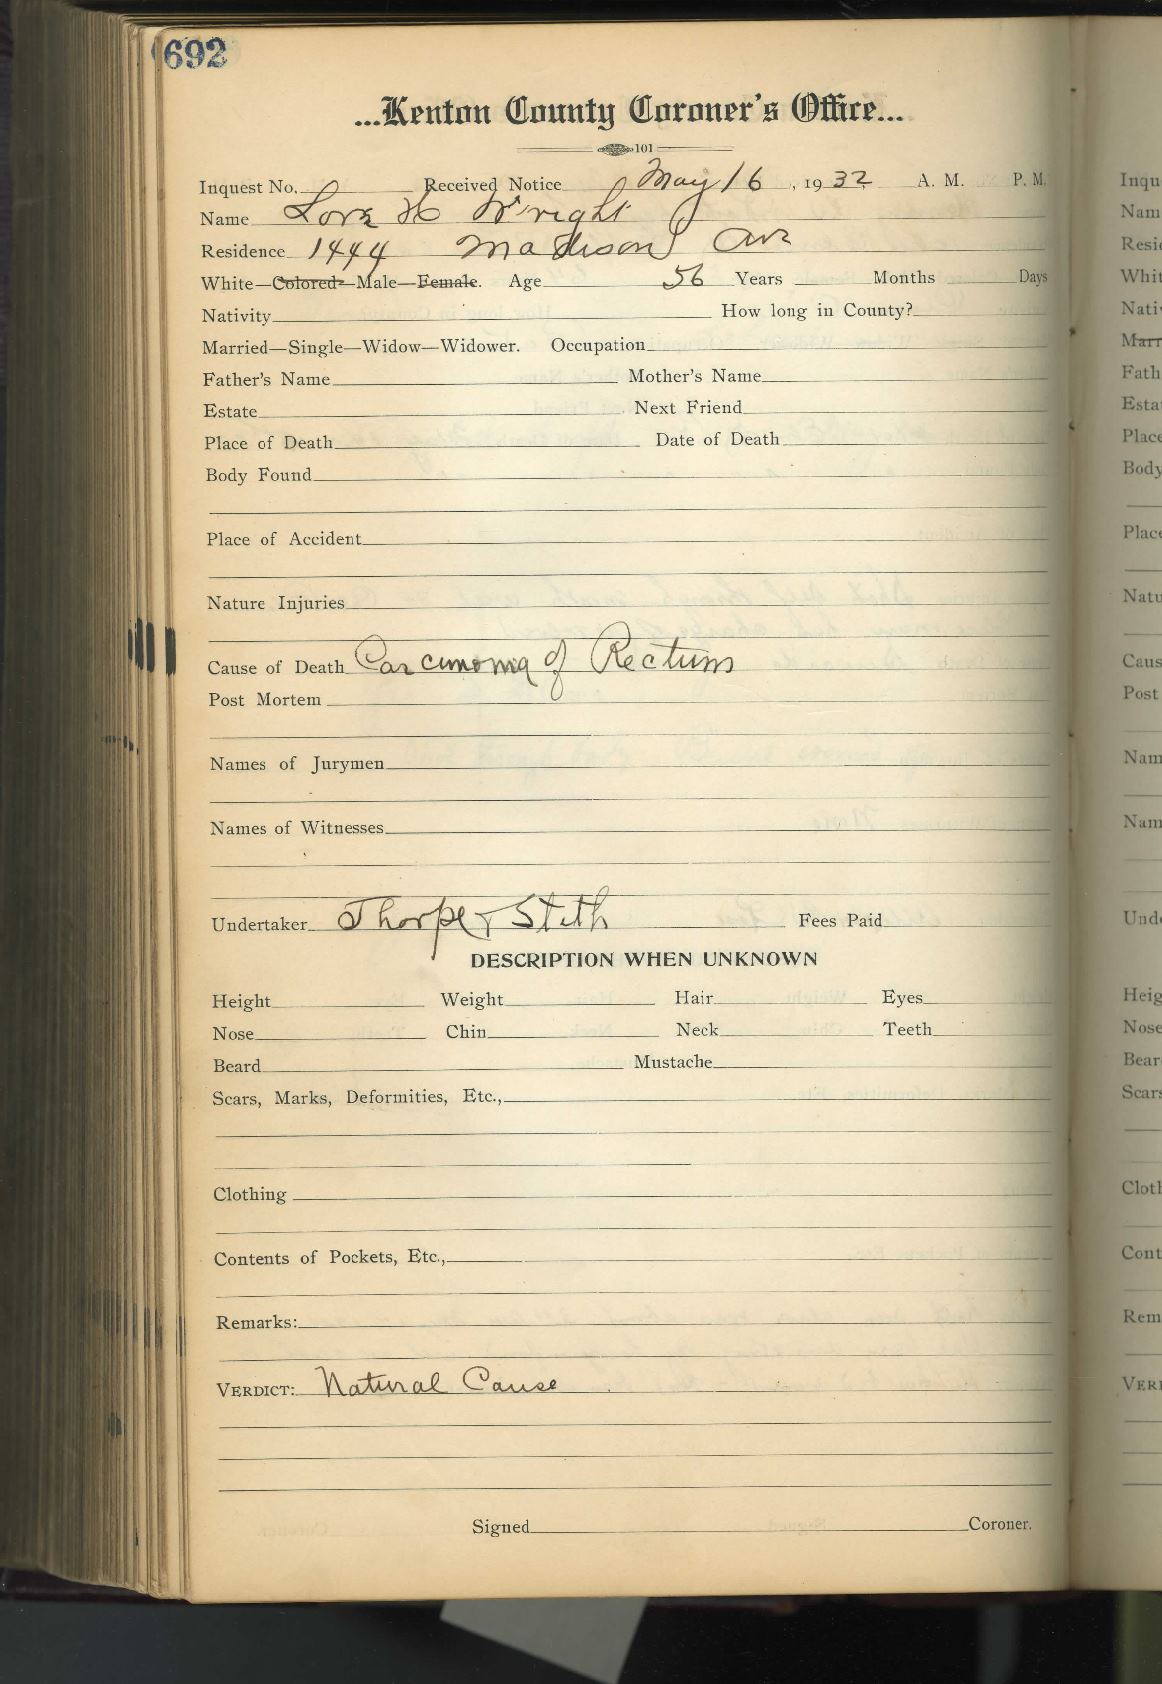 692
...Kenton County Coroner's Office...
101
Inquest No. Received Notice May 16, 1932 A. M. P. M.
Name H Wright
Residence 1444 Madison Ave
White—Colored—Male—Female. Age 56 Years Months Days
Nativity How long in County?
Married—Single—Widow—Widower. Occupation
Father's Name Mother's Name
Estate Next Friend
Place of Death Date of Death
Body Found
Place of Accident
Nature Injuries
Cause of Death Carcinoma of Rectum
Post Mortem
Names of Jurymen
Names of Witnesses
Undertaker Thorpe & Stith Fees Paid
DESCRIPTION WHEN UNKNOWN
Height Weight Hair Eyes
Nose Chin Neck Teeth
Beard Mustache
Scars, Marks, Deformities, Etc.,
Clothing
Contents of Pockets, Etc.,
Remarks:
VERDICT: Natural Cause
Signed Coroner.